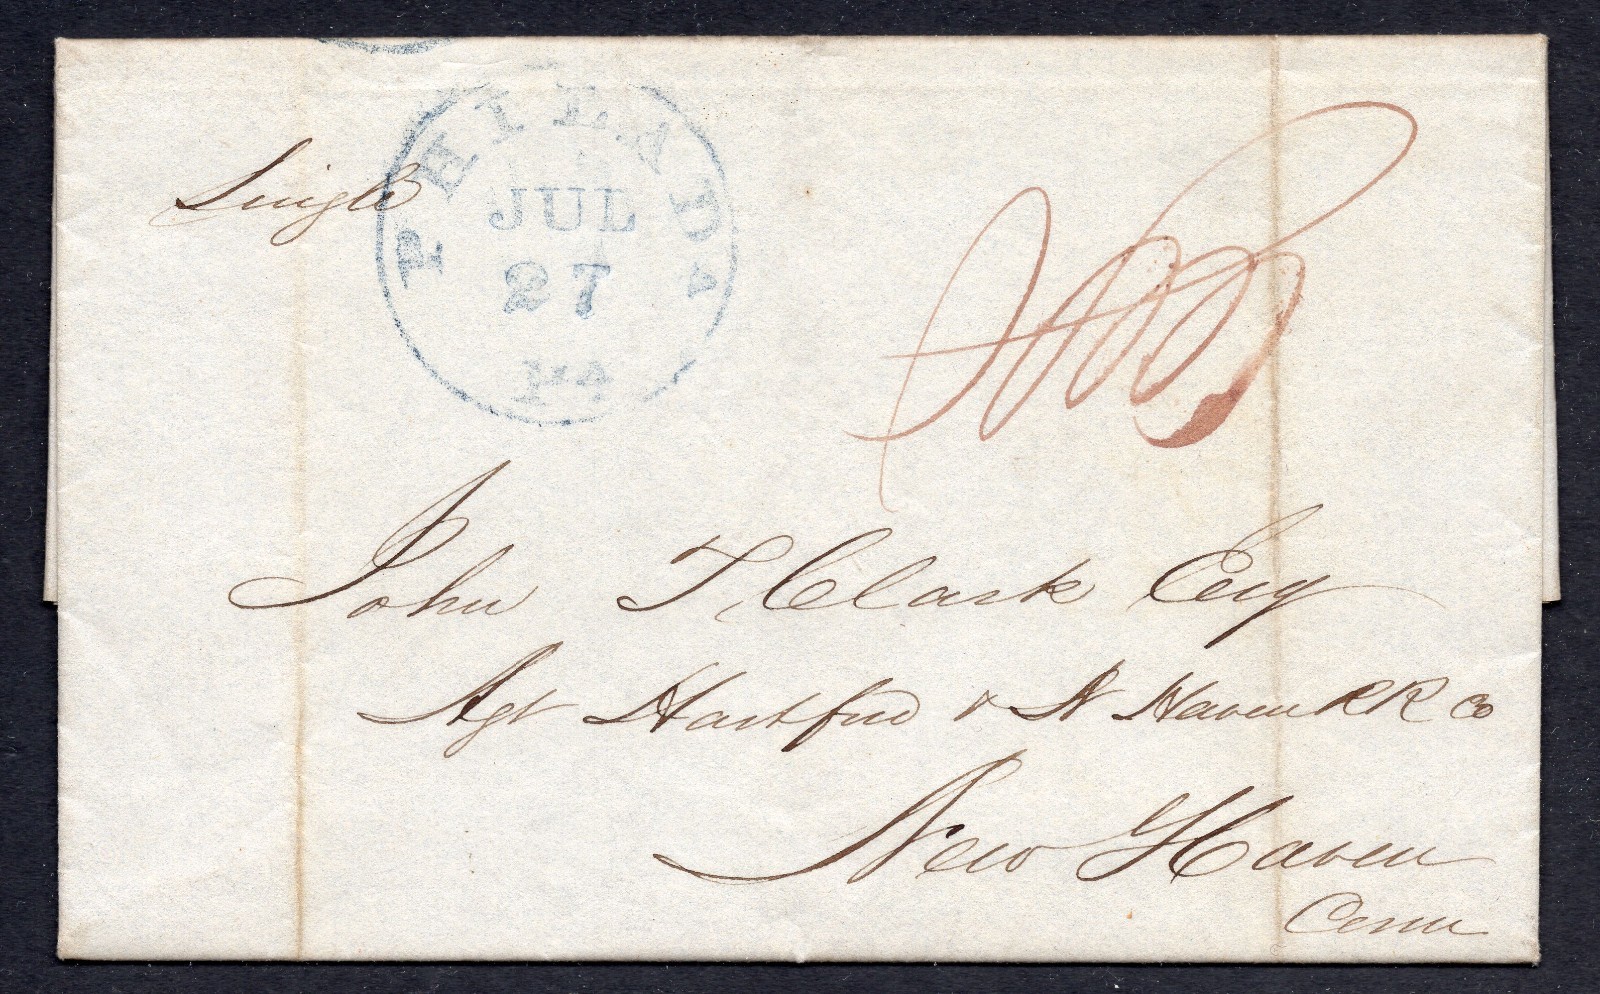 Single
PHILADA
JUL
27
Pa
John T Clark Esq
Agt Hartford & N Haven RR Co
New Haven
Conn